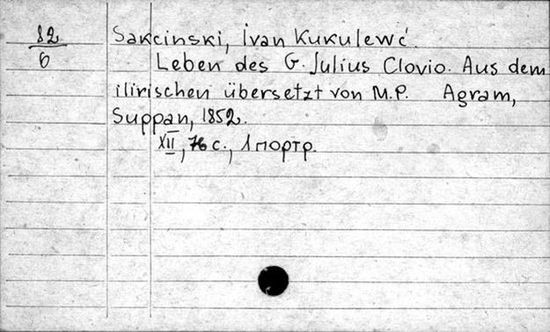 82
6
Sakcinski, Ivan Kukulewć.
Leben des G. Julius Clovio. Aus dem
ilirischen übersetzt von M.P. Agram,
Suppan, 1852.
XII, 76 с., 1 портр.